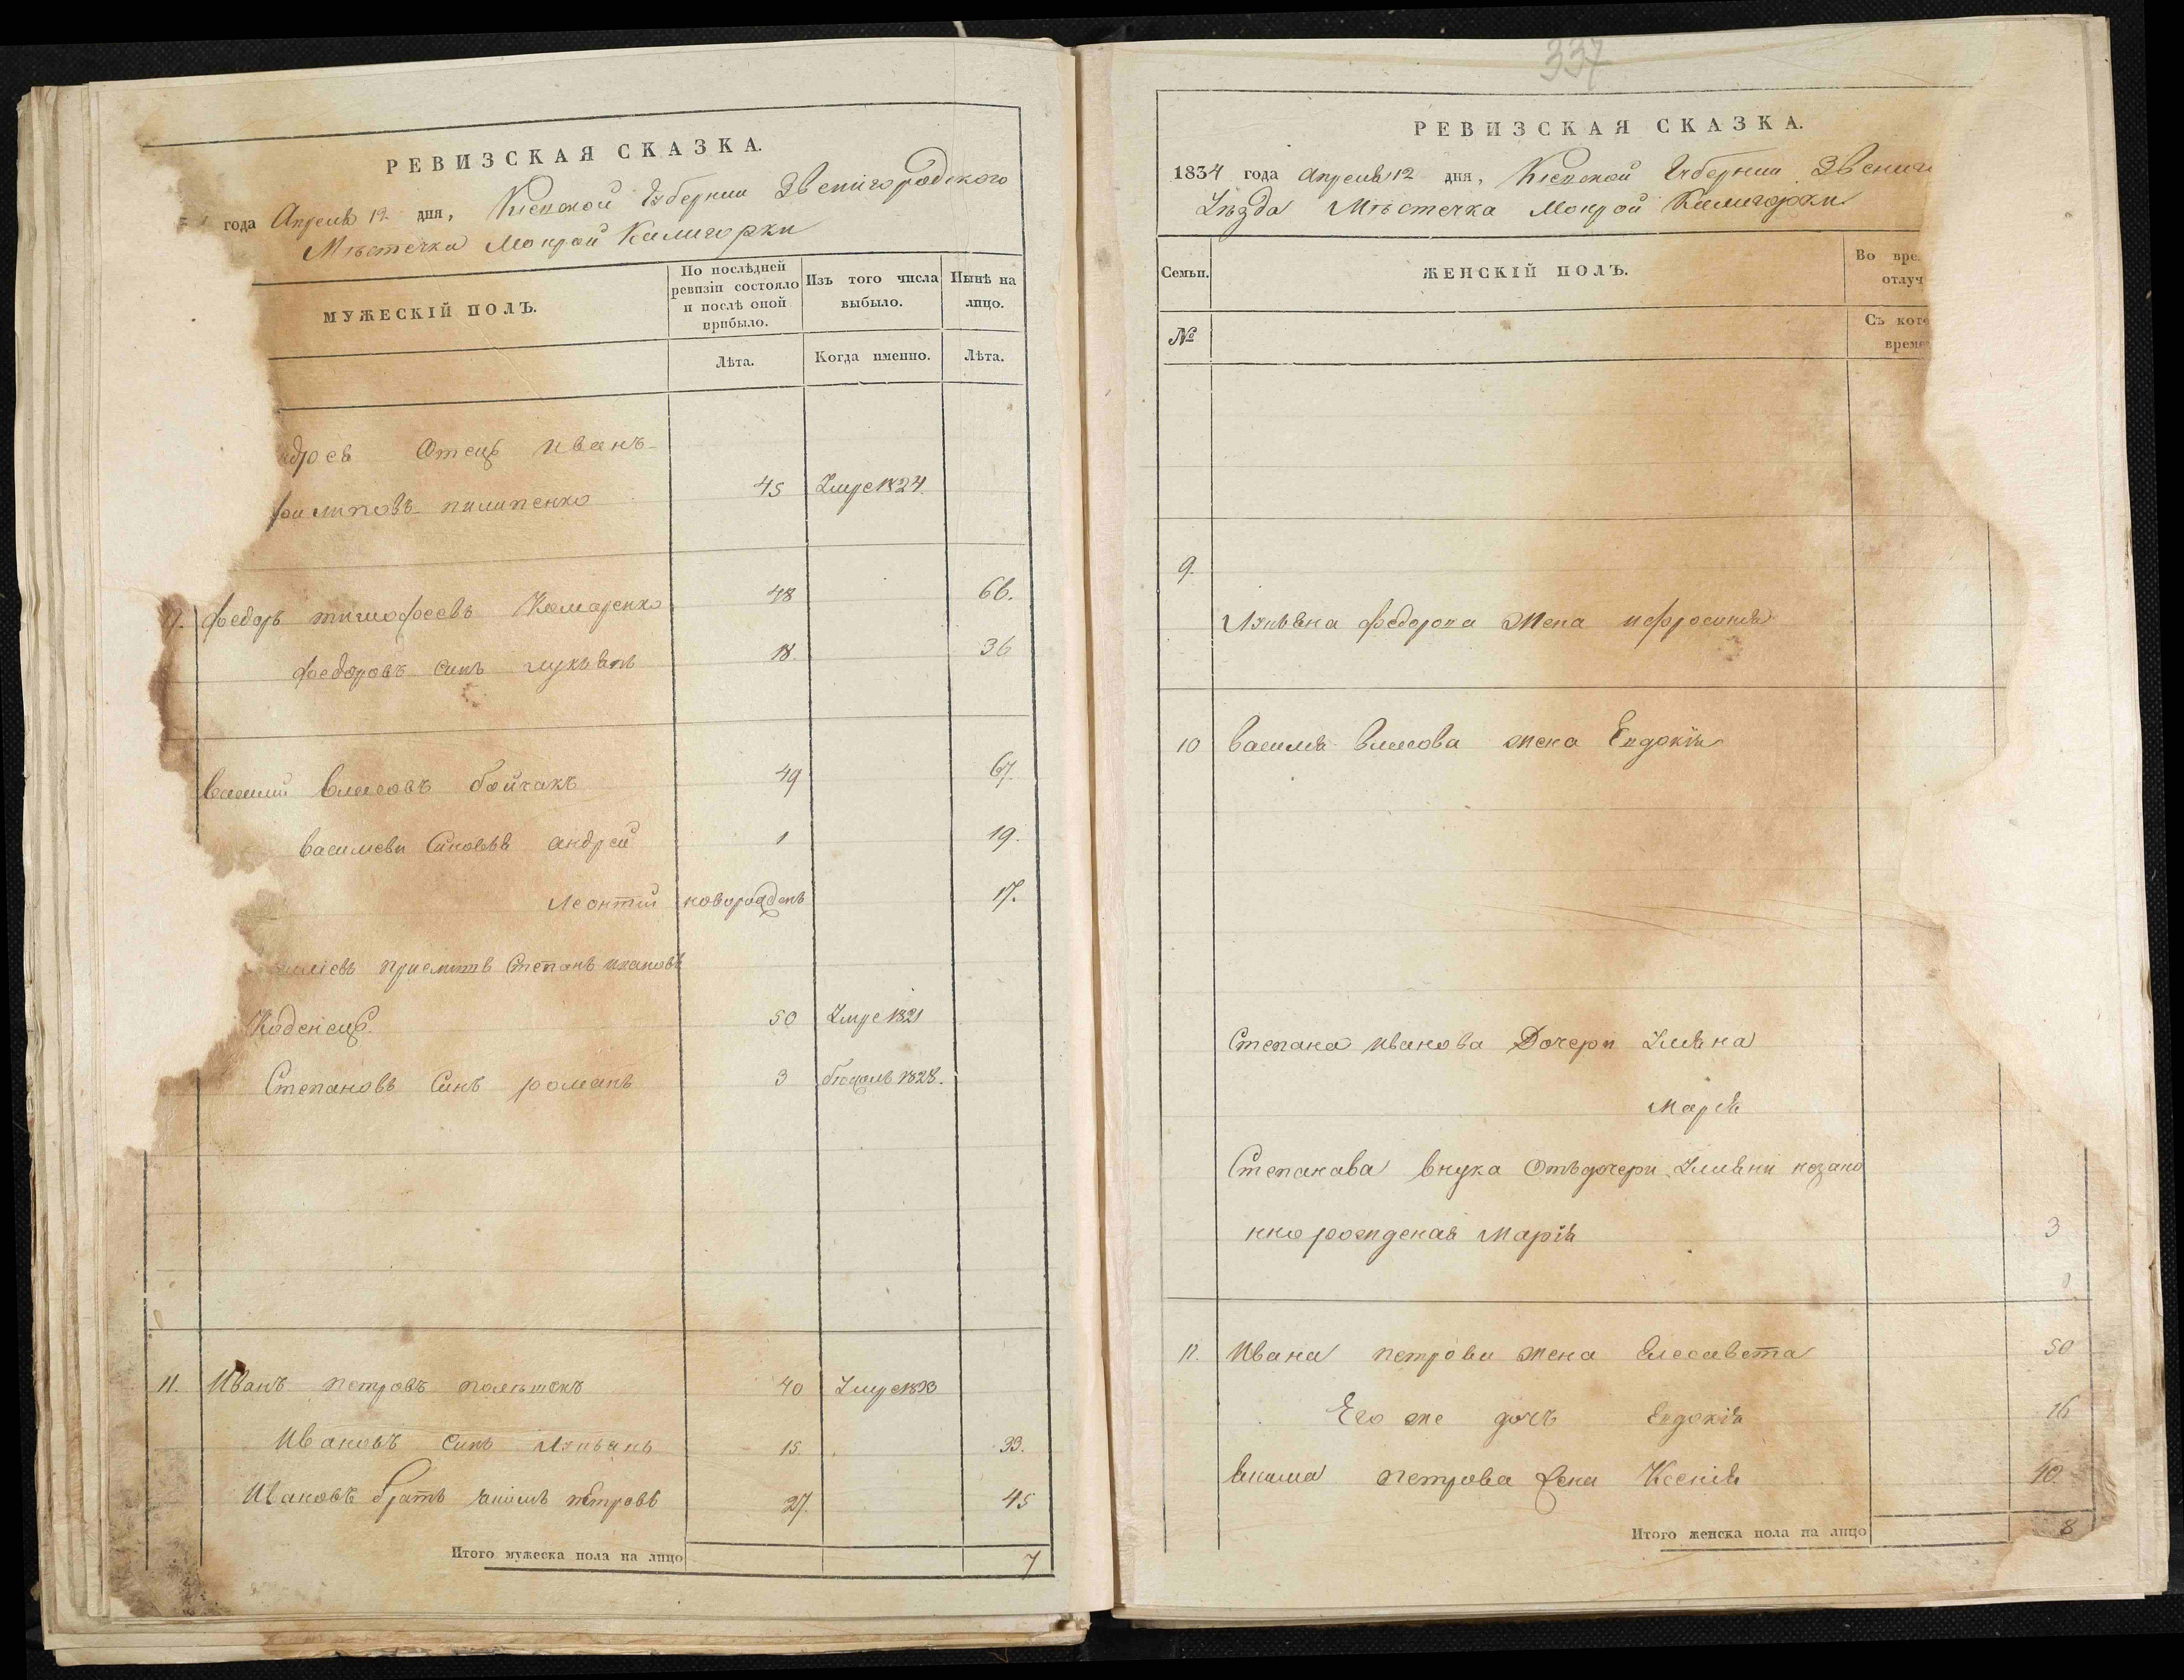 РЕВИЗСКАЯ СКАЗКА.
года Апреля 12 дня, Кіевской Губерніи Звенигородского
Мѣстечка Мокрой Калигорки
МУЖЕСКІЙ ПОЛЪ.
По послѣдней ревизіи состояло и послѣ оной прибыло.
Изъ того числа выбыло.
Нынѣ на лицо.
Лѣта.
Когда именно.
Лѣта.
Отецъ Иванъ
филиповъ пилипенко 45 Умре 1824.
9. Федоръ тимофеевъ Комаренко 48 66.
Федоровъ синъ лукьянъ 18. 36
василий власовъ бойчакъ 49 67.
василеви Синовья андрей 1 19.
Леонтий новорожденъ 17.
приемышъ Степанъ ивановъ
50 Умре 1821
Степановъ Синъ романъ 3 1828.
11. Иванъ петровъ 40 Умре 1833
Ивановъ Синъ Лукьянъ 15. 33.
Ивановъ братъ якимъ петровъ 27. 45
Итого мужеска пола на лицо 7
337
РЕВИЗСКАЯ СКАЗКА.
1834 года Апреля 12 дня, Кіевской Губерніи Звениго
Уезда Мѣстечка Мокрой Калигорки
Семьи.
ЖЕНСКІЙ ПОЛЪ.
Во вре
отлуч
№
Съ кото
време
9.
Лукьяна федорова Жена ифросинія
10 василя власова жена Евдокія
Степана иванова Дочери Уляна
Марія
Степанава внука Отъ дочери Уляни незако
нно рожденая Марія 3
11. Ивана петрова жена Елесавета 50
Его же дочъ Евдокія 16
Якима петрова жена Ксенія 40.
Итого женска пола на лицо 8